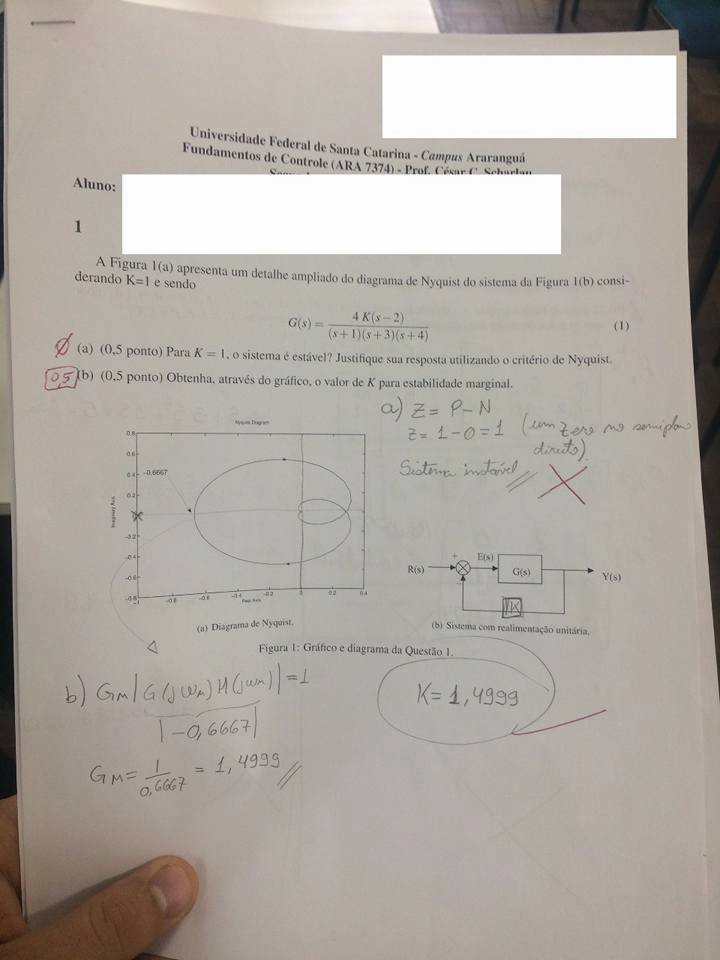 Universidade Federal de Santa Catarina - Campus Araranguá
Fundamentos de Controle (ARA 7374) - Prof. César C. Scharlau
Aluno:
1
A Figura 1(a) apresenta um detalhe ampliado do diagrama de Nyquist do sistema da Figura 1(b) consi-
derando K=1 e sendo
G(s) = 4 K(s − 2) / (s + 1)(s + 3)(s + 4) (1)
0 (a) (0,5 ponto) Para K = 1, o sistema é estável? Justifique sua resposta utilizando o critério de Nyquist.
0,5 (b) (0,5 ponto) Obtenha, através do gráfico, o valor de K para estabilidade marginal.
a) Z = P − N
Z = 1 − 0 = 1 (um zero no semiplano
direito).
Sistema instável
Nyquist Diagram
0.8
0.6
0.4
0.2
-0.2
-0.4
-0.6
-0.8
-0.6667
Imaginary Axis
-1 -0.8 -0.6 -0.4 -0.2 0 0.2 0.4
Real Axis
(a) Diagrama de Nyquist.
R(s) + − E(s) G(s) Y(s)
K
(b) Sistema com realimentação unitária.
Figura 1: Gráfico e diagrama da Questão 1.
b) GM |G(jωn) H(jωn)| = 1
|−0,6667|
GM = 1 / 0,6667 = 1,4999
K = 1,4999